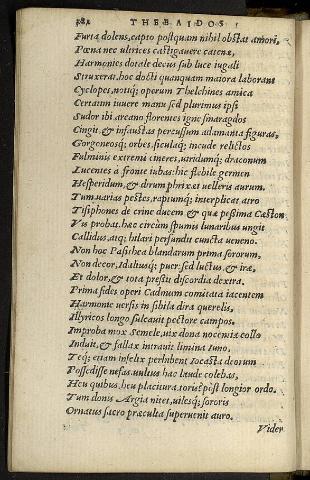 282 THEBAIDOS
Furta dolens, capto postquam nihil obstat amori,
Pœna nec ultrices castigauere catenæ,
Harmonies dotale decus sub luce iugali
Struxerat, hoc docti quanquam maiora laborant
Cyclopes, notiq; operum Thelchines amica
Certatim iuuere manu sed plurimus ipsi
Sudor ibi arcano florentes igne smaragdos
Cingit, & infaustas percussum adamanta figuras,
Gorgoneosq; orbes, siculaq; incude relictos
Fulminis extremi cineres, uiridumq; draconum
Lucentes a fronte iubas: hic flebile germen
Hesperidum, & dirum phrixæi uelleris aurum.
Tum uarias pestes, raptumq; interplicat atro
Tisiphones de crine ducem & quæ pessima Cæston
Vis probat. hæc circum spumis lunaribus ungit
Callidus, atq; hilari perfundit cuncta ueneno.
Non hoc Pasithea blandarum prima sororum,
Non decor, Idaliusq; puer: sed luctus, & iræ,
Et dolor, & tota pressit discordia dextra.
Prima fides operi Cadmum comitata iacentem
Harmonie uersis in sibila dira querelis,
Illyricos longo sulcauit pectore campos.
Improba mox Semele, uix dona nocentia collo
Induit, & fallax intrauit limina Iuno.
Teq; etiam infelix perhibent Iocasta decorum
Possedisse nefas. uultus hac laude colebas,
Heu quibus, heu placitura. toris: post longior ordo.
Tum donis Argia nites, uilesq; sororis
Ornatus sacro præculta superuenit auro.
Vider